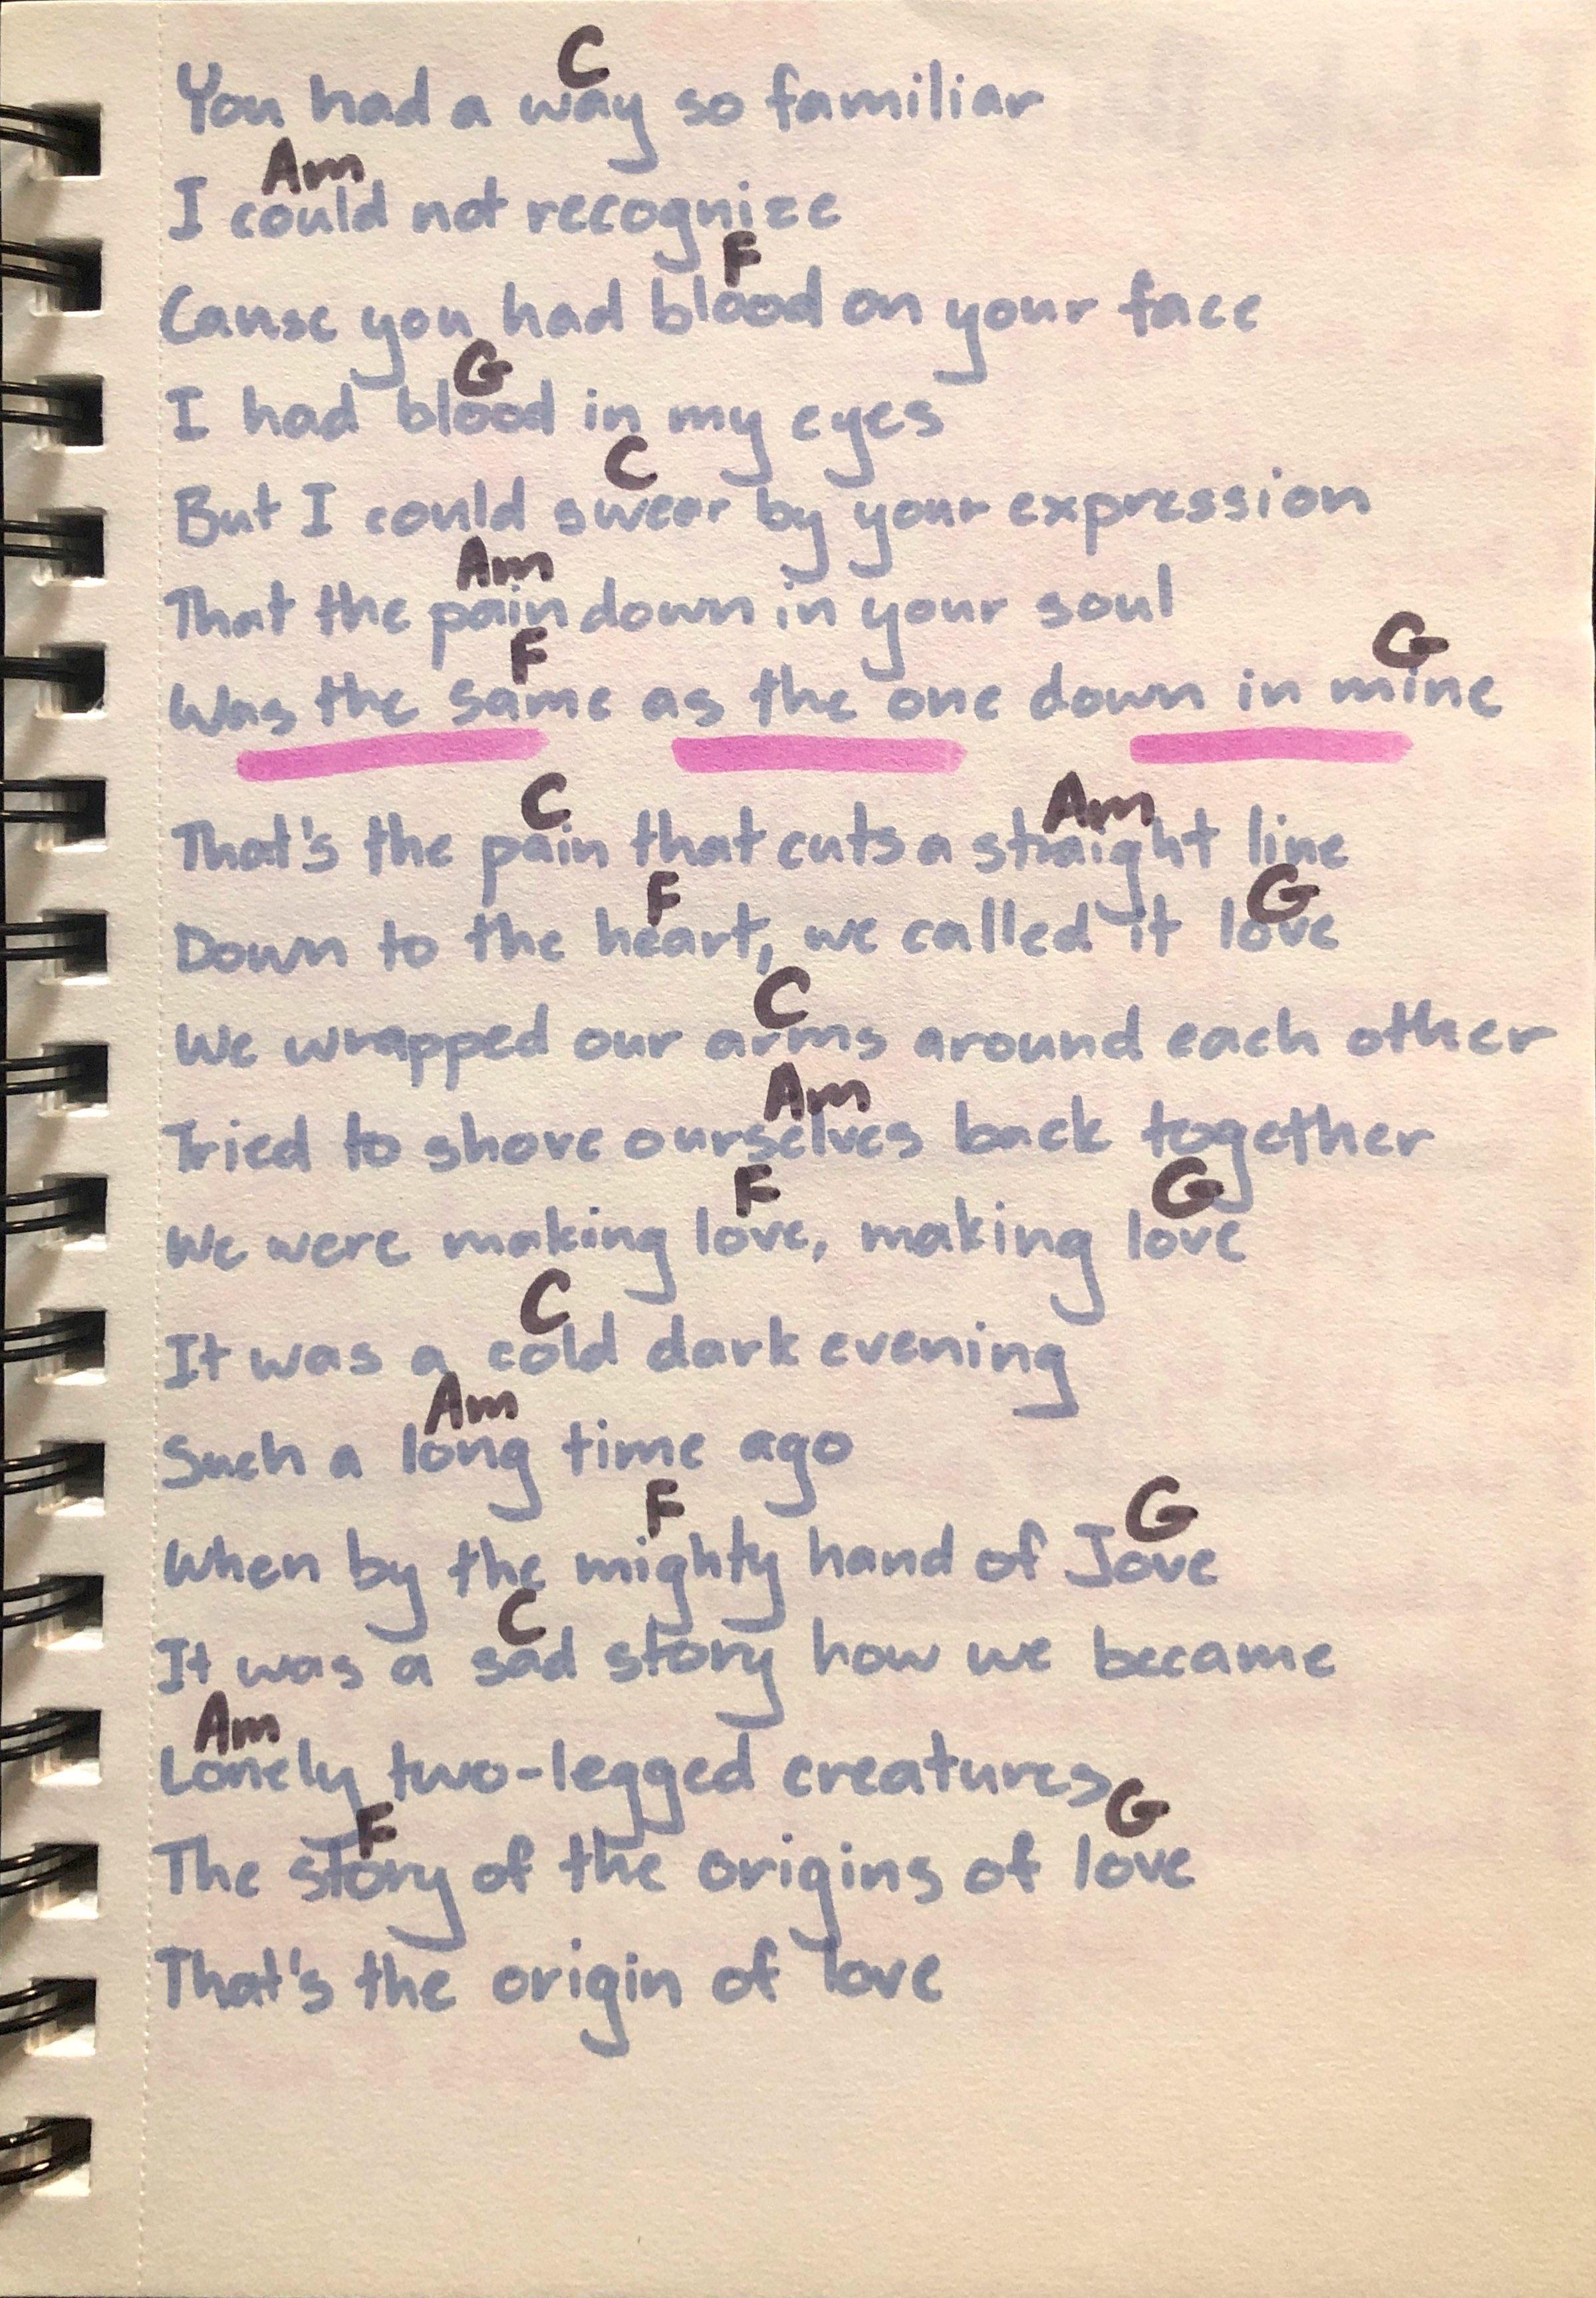 C
You had a way so familiar
Am
I could not recognize
F
Cause you had blood on your face
G
I had blood in my eyes
C
But I could swear by your expression
Am
That the pain down in your soul
F G
Was the same as the one down in mine
C Am
That's the pain that cuts a straight line
F G
Down to the heart, we called it love
C
We wrapped our arms around each other
Am
Tried to shove ourselves back together
F G
We were making love, making love
C
It was a cold dark evening
Am
Such a long time ago
F G
When by the mighty hand of Jove
C
It was a sad story how we became
Am
Lonely two-legged creatures
F G
The story of the origins of love
That's the origin of love